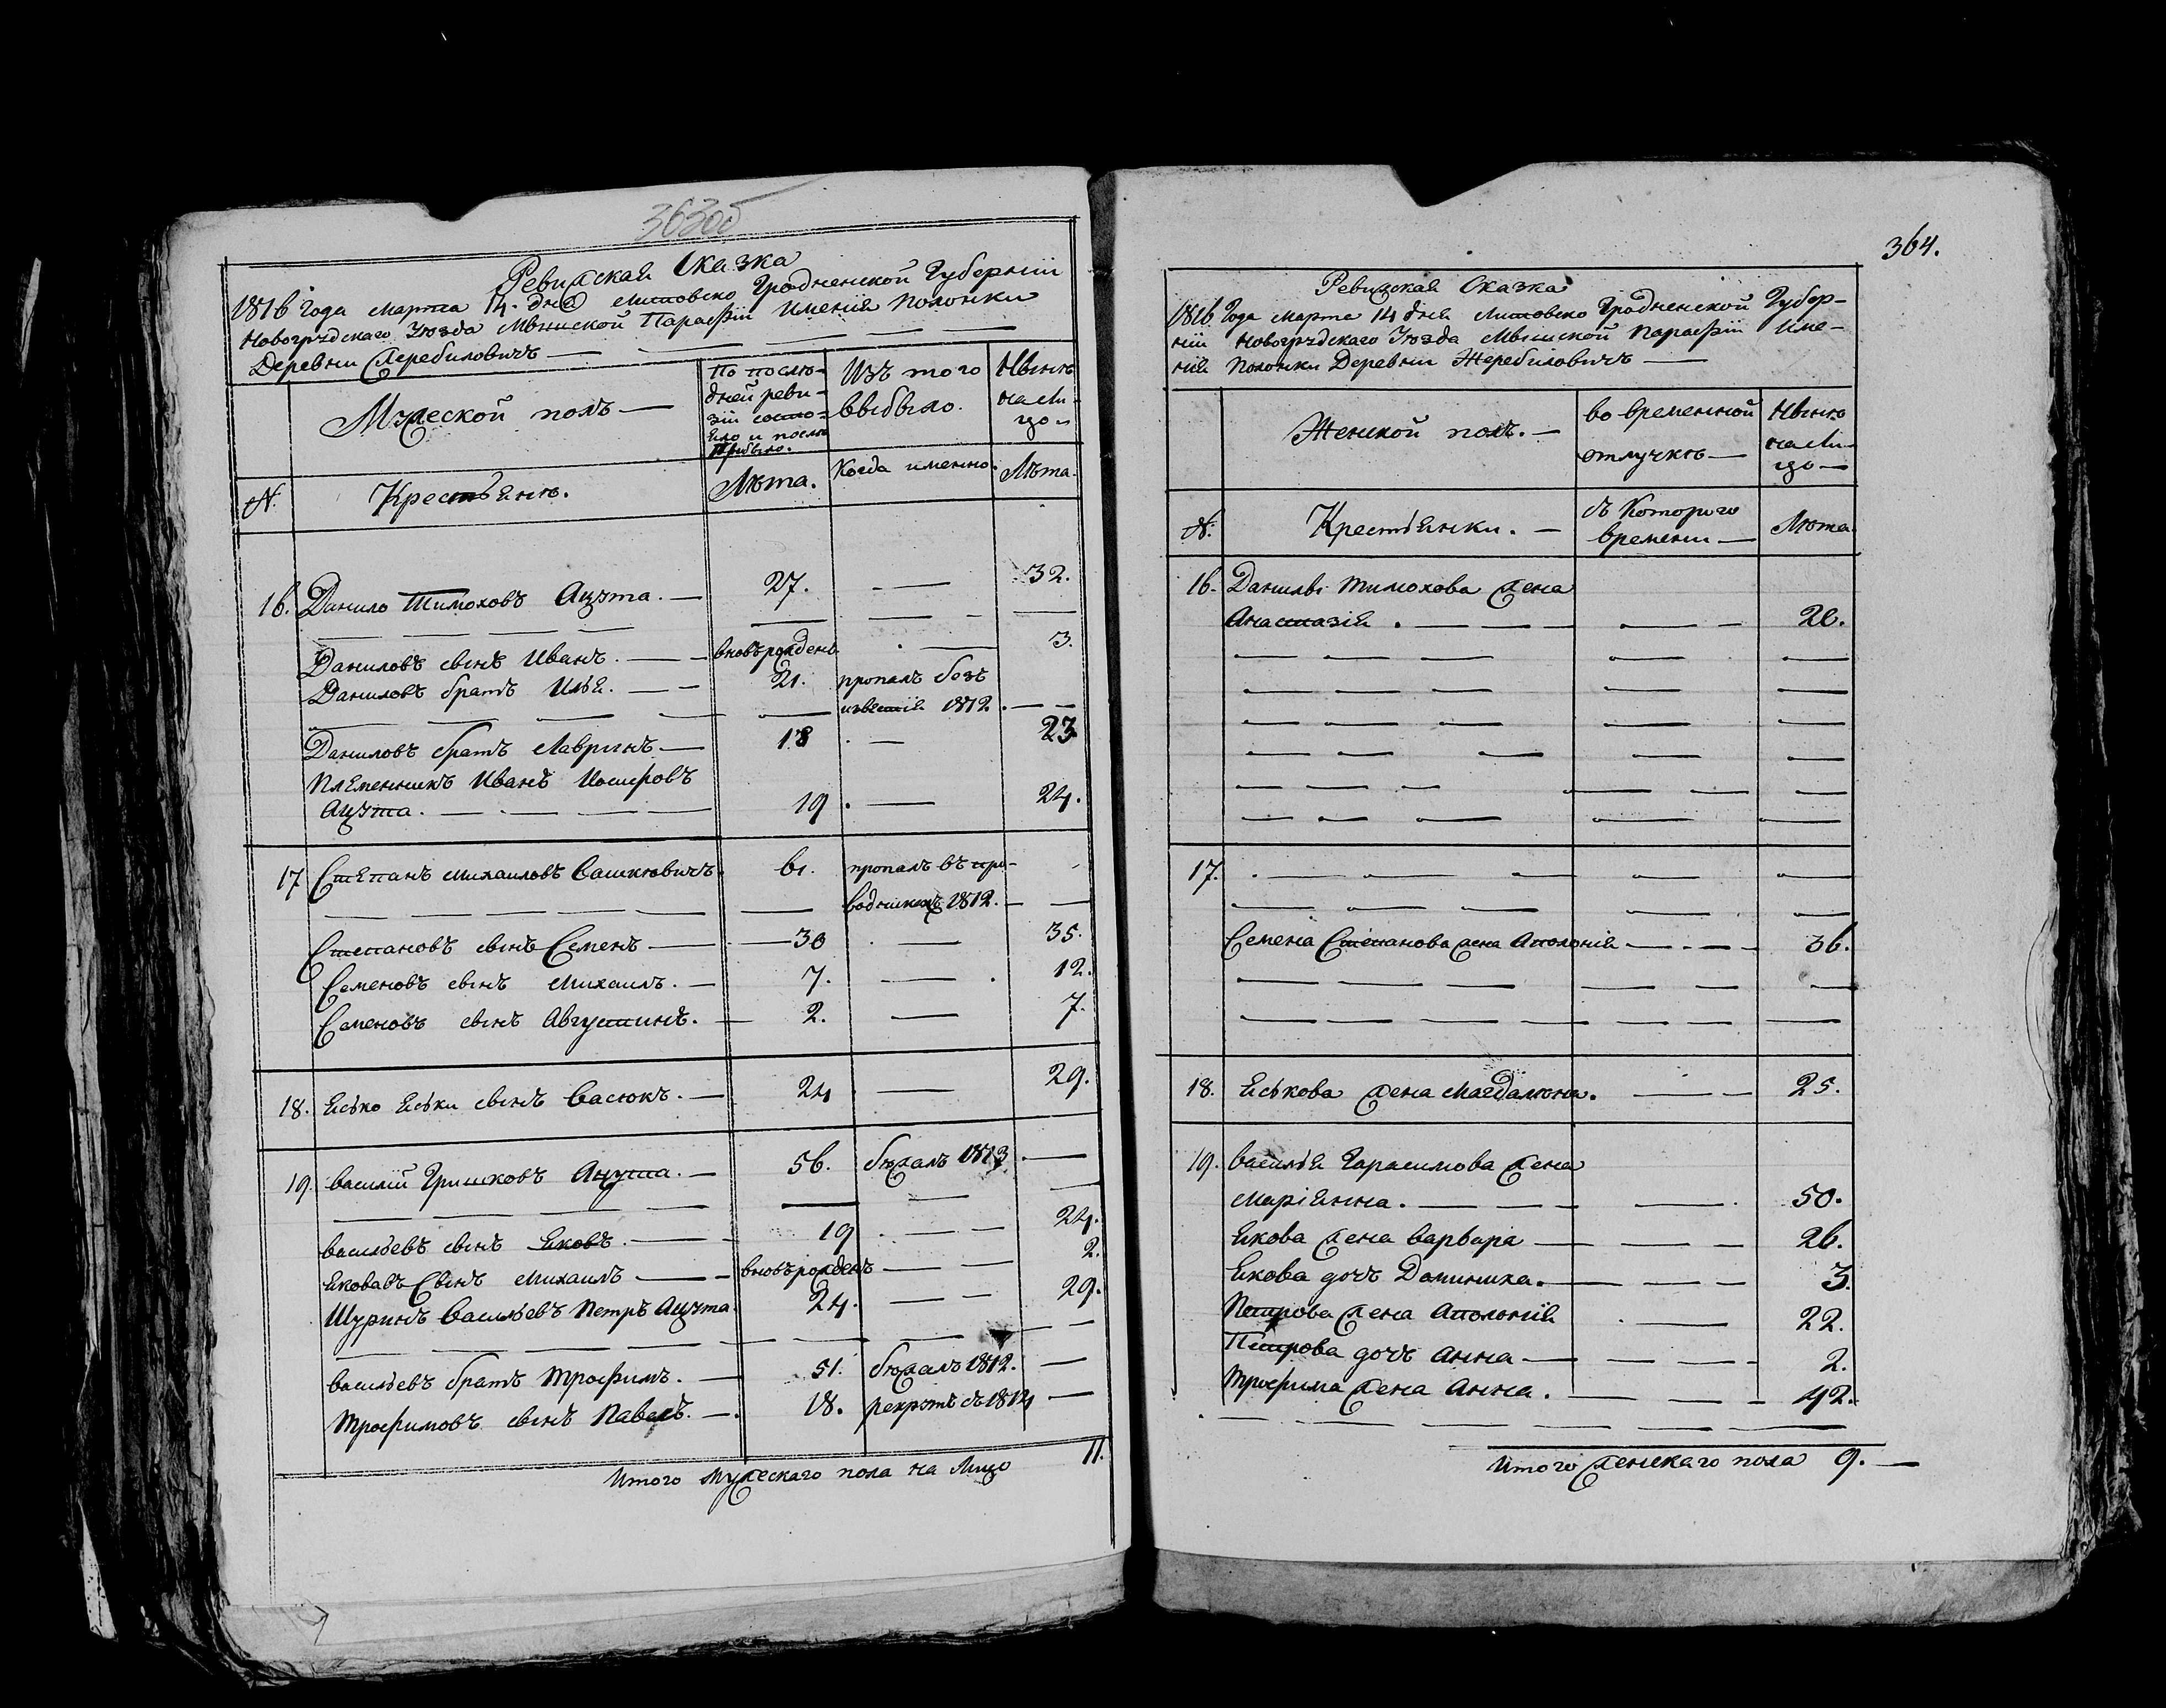 363об
Ревижская Сказка
1816 Года Марта 14. дня Литовско Гродненской Губерніи
Новогрудскаго Уѣзда Мышской Парафіи Именія Полонки
Деревни Жеребиловичъ
Мужеской полъ —
По послѣ-
дней реви-
зіи состо-
яло и послѣ
прибыло.
Изъ того
выбыло.
Нынѣ
на ли-
цо —
N.
Крестьянѣ.
Лѣта.
Когда именно.
Лѣта.
16. Данило Тимоховъ Ацута. — 27. — 32.
Даниловъ сынъ Иванъ. — вновърожденъ — 3.
Даниловъ братъ Илья. — 21. пропалъ безъ
извѣстія 1812. —
Даниловъ братъ Лавринъ. — 18 — 23
Племенникъ Иванъ Іосифовъ
Ацута. — 19. — 24.
17 Степанъ Михаиловъ Сашкѣвичъ. 61. пропалъ въ про-
водникахъ 1812. —
Степановъ сынъ Семенъ — 30 — 35.
Семеновъ сынъ Михаилъ. — 7. — 12.
Семеновъ сынъ Августинъ. — 2. — 7.
18. Есько Еськи сынъ Васюкъ. — 24 — 29.
19. Василій Гришковъ Ацута. — 56. бѣжалъ 1813. —
Васильевъ сынъ Яковъ. — 19 — 24.
Яковавъ Сынъ Михаилъ — вновърожденъ — 2.
Шуринъ Васильевъ Петръ Ацута. 24. — 29.
Васильевъ братъ Трофимъ. — 51. бѣжалъ 1812. —
Трофимовъ сынъ Павелъ. — 18. рекрутъ съ 1814 —
Итого Мужескаго пола на Лицо 11.
364.
Ревижская Сказка
1816 Года Марта 14 дня Литовско Гродненской Губер-
ніи Новогрудскаго Уѣзда Мышской Парафіи Име-
нія Полонки Деревни Жеребиловичъ —
Женской полъ. —
во временной
отлучкѣ —
Нынѣ
на ли-
цо —
N.
Крестьянки. —
съ Которого
времени —
Лѣта
16. Данилы Тимохова жена
Анастазія. — 20.
17.
Семена Степанова жена Аполонія — 36.
18. Еськова жена Магдалѣна. — 25.
19. Василья Гарасимова жена
Маріянна. — 50.
Якова жена Варвара — 26.
Якова дочъ Доминика. — 3.
Петрова жена Аполонія — 22.
Петрова дочъ Анна — 2.
Трофима жена Анна. — 42.
Итого женскаго пола 9. —